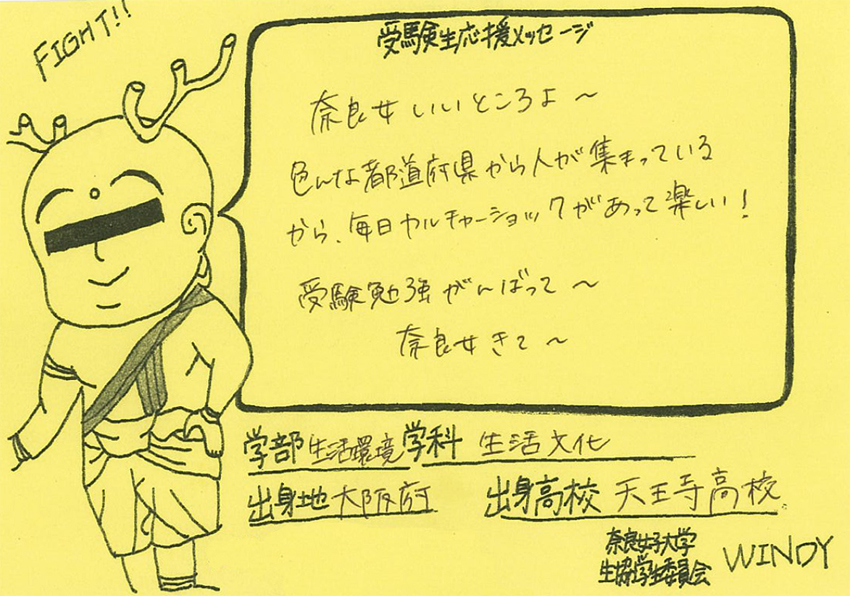 FIGHT!!
受験生応援メッセージ
奈良女 いいところよ～
色んな都道府県から人が集まっている
から、毎日カルチャーショックがあって楽しい！
受験勉強がんばって～
奈良女きて～
学部 生活環境 学科 生活文化
出身地 大阪府 出身高校 天王寺高校
奈良女子大学
生協学生委員会 WINDY